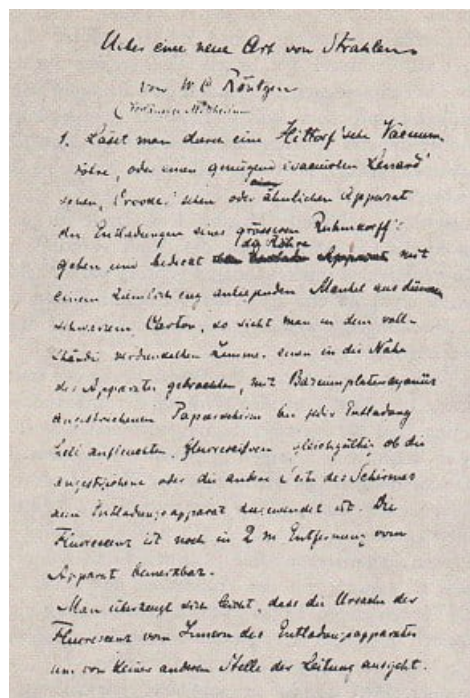 Ueber eine neue Art von Strahlen
von W. C. Röntgen
(Vorläufige Mittheilung)
1. Lässt man durch eine Hittorf'sche Vacuum-
röhre, oder einen genügend evacuirten Lenard'
schen, Crookes'schen oder ähnlichen Apparat
die Entladungen eines grösseren Ruhmkorff's
gehen und bedeckt die Röhre mit
einem ziemlich eng anliegenden Mantel aus dünnem
schwarzem Carton, so sieht man in dem voll-
ständig verdunkelten Zimmer einen in die Nähe
des Apparates gebrachten, mit Bariumplatincyanür
angestrichenen Papierschirm bei jeder Entladung
hell aufleuchten, fluoresciren, gleichgültig ob die
angestrichene oder die andere Seite des Schirmes
dem Entladungsapparat zugewendet ist. Die
Fluorescenz ist noch in 2 m Entfernung vom
Apparat bemerkbar.
Man überzeugt sich leicht, dass die Ursache der
Fluorescenz vom Innern des Entladungsapparates
und von keiner anderen Stelle der Leitung ausgeht.